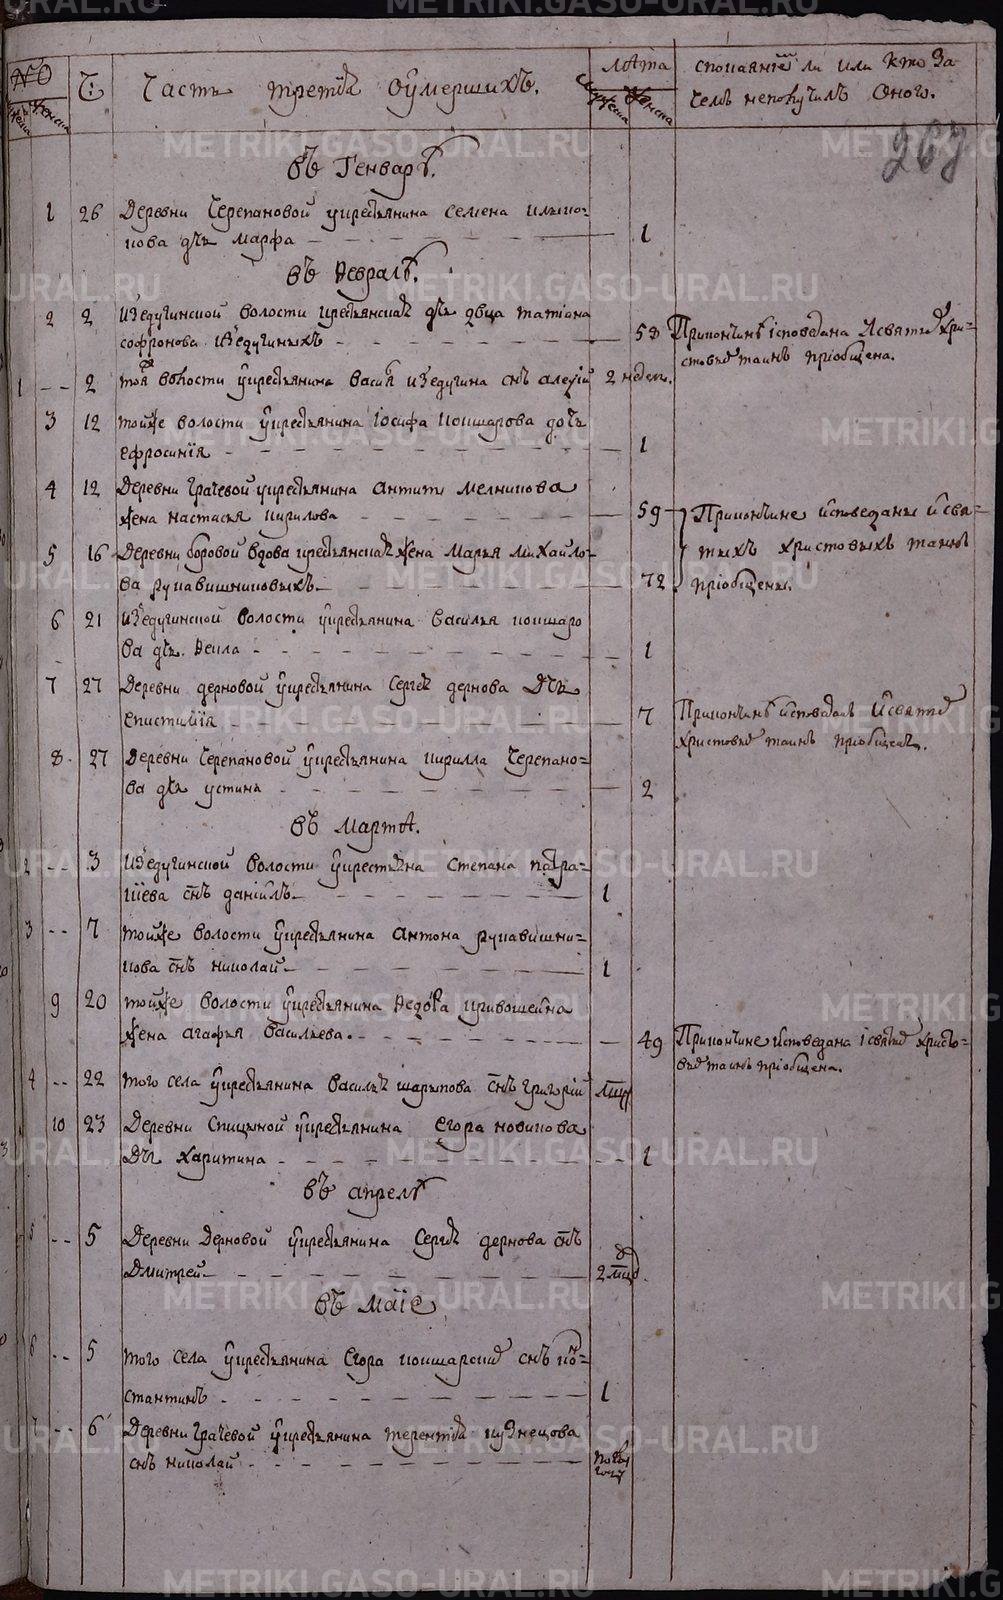 №
Ч:
Часть третїѧ оумершихъ.
Лѣта
мужеска
женска
споисаянїе ли или кто За
чемъ неполучилъ Оного.
267
Въ Генварѣ.
1 26 Деревни Черепановой укрестьянина Семена Илимо-
нова дчь марфа 1
въ Февралѣ.
2 2 Изѣдугинской волости крестьянскаѧ дчь двца татїана
софронова Изѣдугиныхъ 58 Приикончинѣ исповѣдана Исвятыѣ Хри-
стовыѣ таинъ прїобщена.
1 2 тоя волости укрестьянина Василѧ изѣдугина снъ алеѯїй 2 недел.
3 12 тойже волости укрестьянина Іосифа кокшарова дочь
ефросинїя 1
4 12 Деревни Грачевой укрестьянина антипы мелникова
жена настасья кирилова 59 Приикончине исповеданы исвя-
5 16 Деревни боровой вдова крестьянскаѧ жена марья михайло- тыхъ христовыхъ таинъ
ва рукавишниковыхъ 72 прїобщены.
6 21 Изѣдугинской волости укрестьянина василья кокшаро
ва дчь. Ѳекла 1
7 27 Деревни дерновой укрестьянина Сергѣѧ дернова Дчь
епистимїя 7 Приикончинѣ исповѣдалъ Исвятыѣ
христовыѣ таинъ прїобщенъ.
8 27 Деревни Черепановой укрестьянина кирилла Черепано-
ва дчь устинья 2
въ мартѣ.
2 3 Изѣдугинской волости укрестьяна Степана патра-
кїева снъ данїилъ 1
3 7 тойже волости укрестьянина антона рукавишни-
кова снъ николай 1
9 20 тойже волости укрестьянина Ѳедора кривошеина
жена агафья васильева. 49 Приикончине исповедана і святыѣ христо-
выѣ таинъ прїобщена.
4 22 того села укрестьянина василья шарыпова снъ григорїй мцъ
10 23 Деревни Спицыной укрестьянина Егора новикова
Дчь харитина 1
въ апрелѣ
5 5 Деревни Дерновой укрестьянина Сергѣѧ дернова снъ
Дмитрей 2 мцд.
въ маїе
6 5 того села укрестьянина Егора кокшарскиѣ снъ кон-
стантинъ 1
7 6 Деревни грачевой укрестьянина терентїѧ кузнецова
снъ николай полъ
году
METRIKI.GASO-URAL.RU